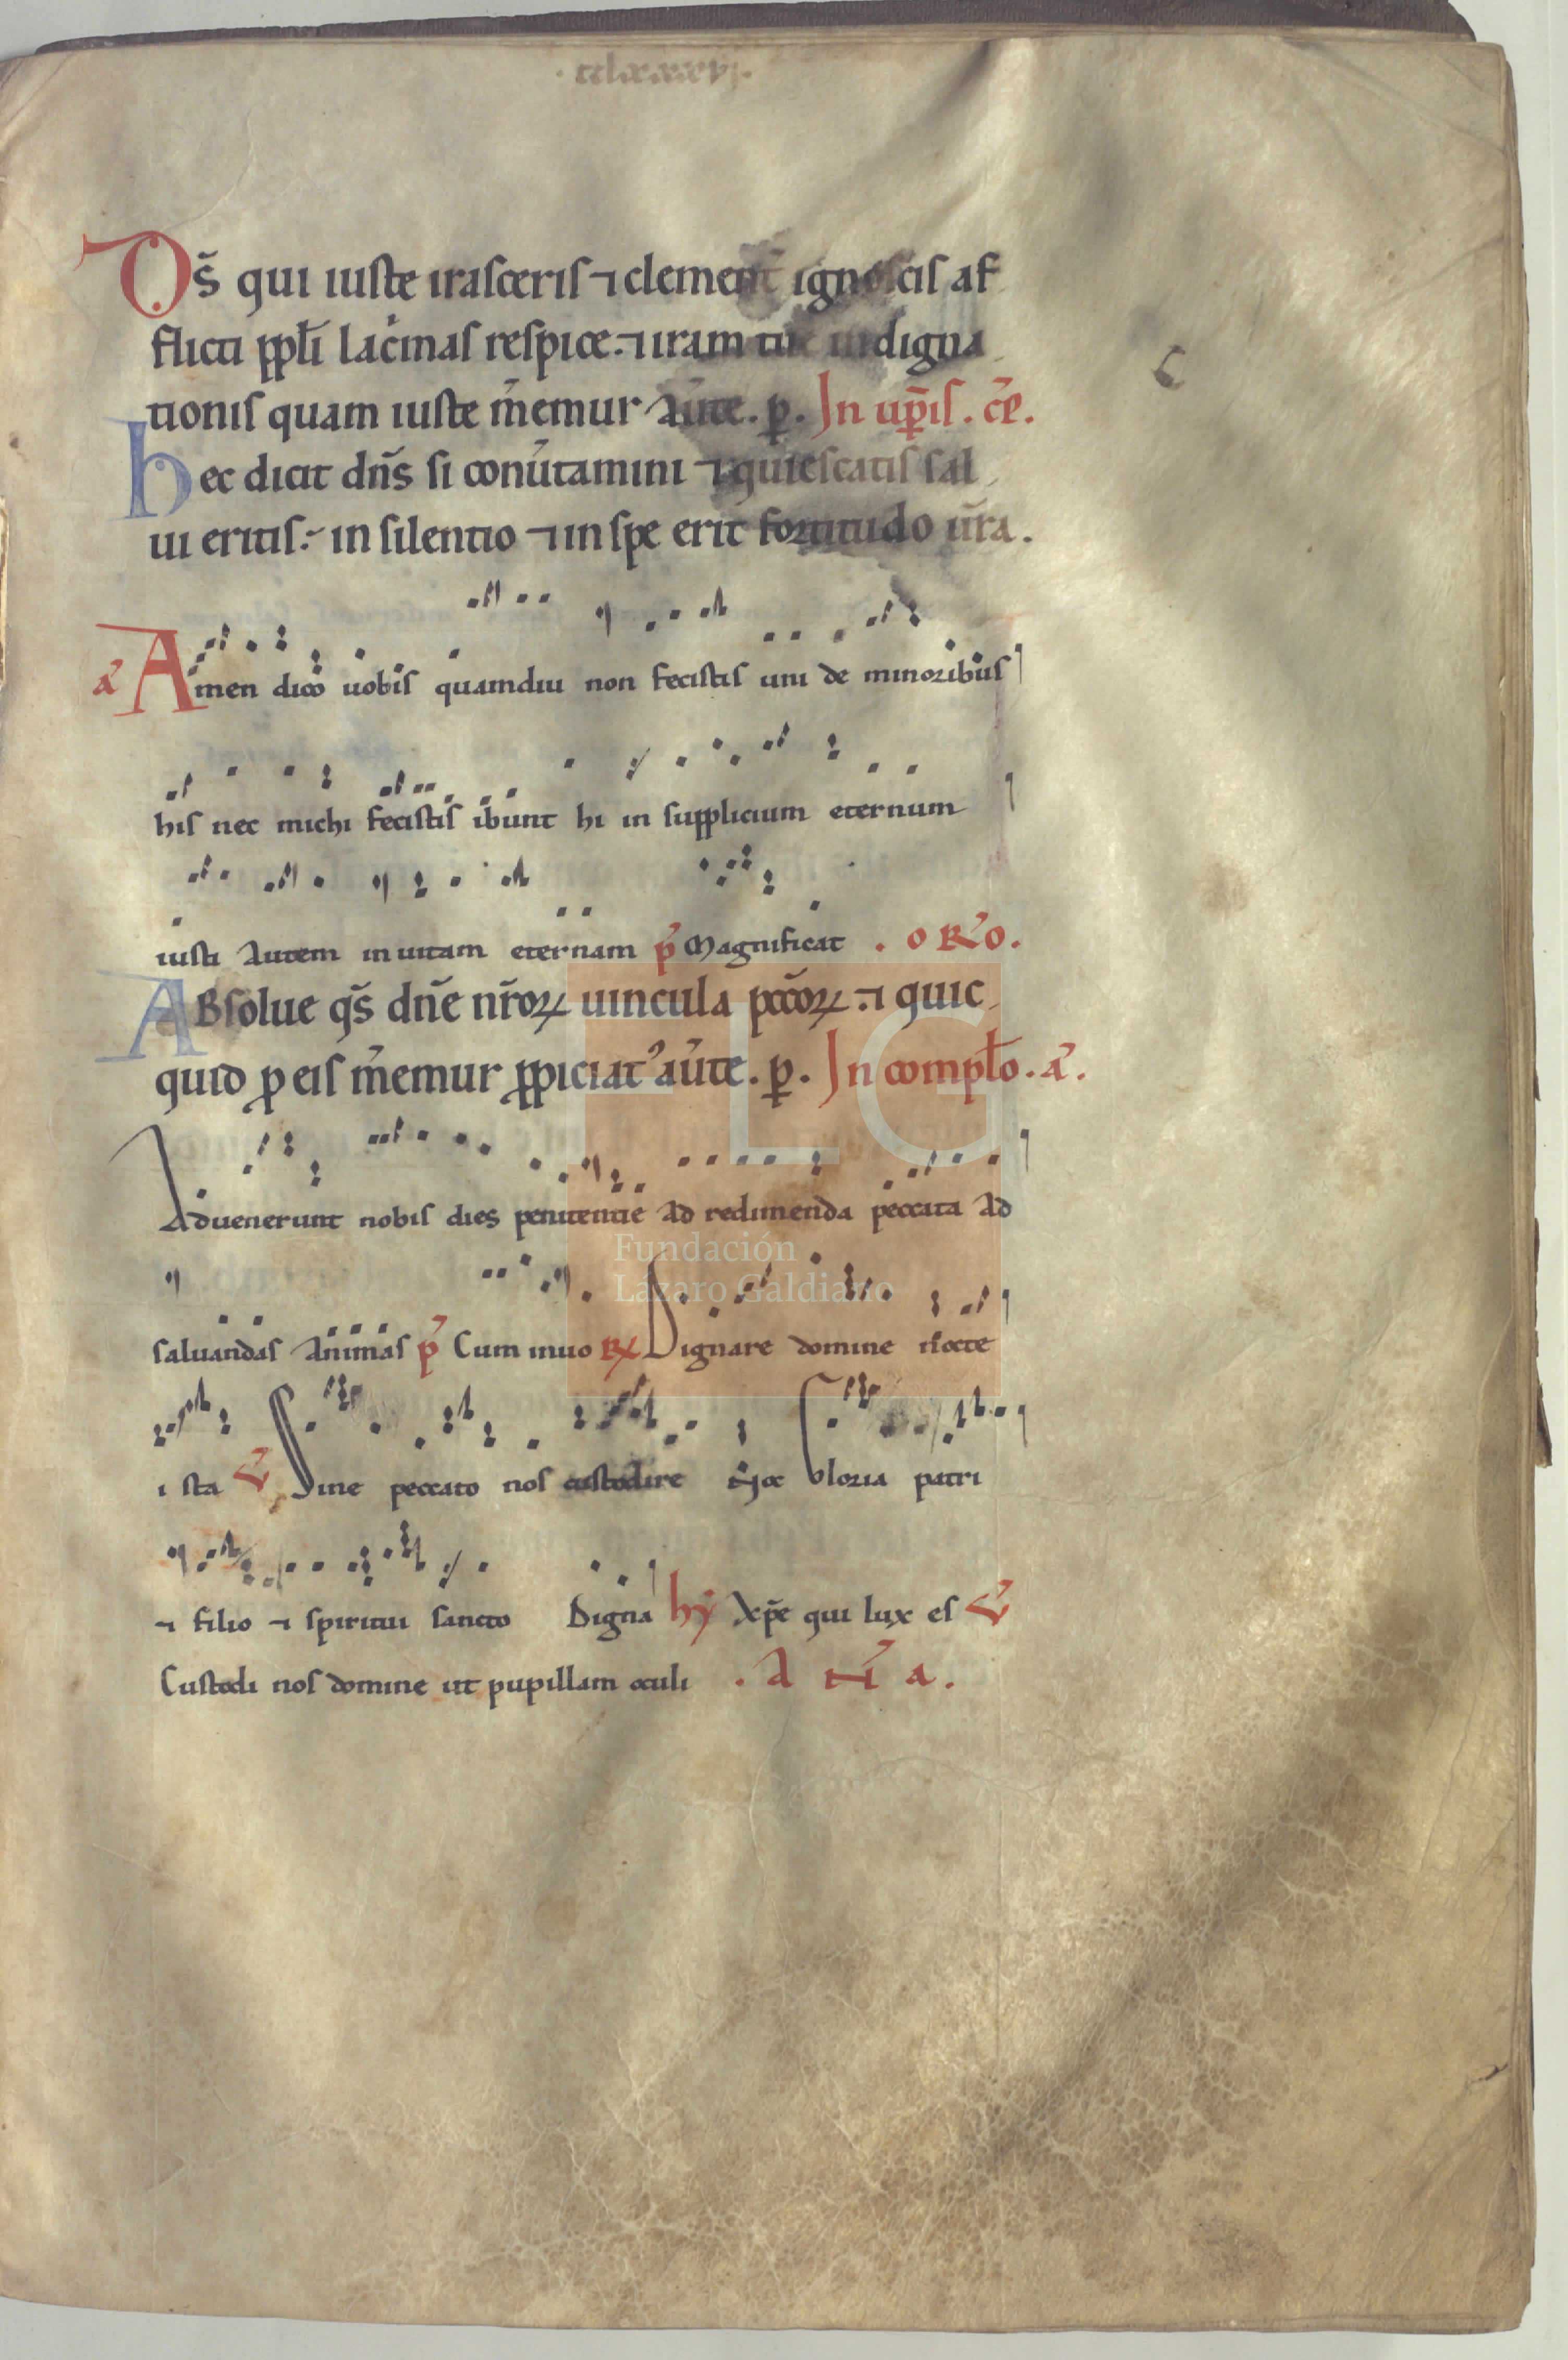 .cclxxxxvj.
Ds̄ qui iuste irasceris ⁊ clement̄ ignoscis af
flicti ppl̄i lac̍mas respice. ⁊ iram tue indigna
tionis quam iuste m̄emur au̍te. p̱. In up̄is. cꝑ̄.
hec dicit dn̄s si conu̍tamini ⁊ quiescatis sal
ui eritis. in silentio ⁊ in spe erit fortitudo ur̄a.
a̍ Amen dico uobis quamdiu non fecistis uni de minoribus
his nec michi fecistis ibunt hi in supplicium eternum
iusti autem in uitam eternam p̍ Magnificat . o R̍o.
ABsolue qs̄ dn̄e nr̄oꝝ uincula pccōꝝ. ⁊ quic
quid ꝓ eis m̍emur ꝓpiciatꝰ au̍te. p̱. In compl̄o. a̍.
Aduenerunt nobis dies penitentie ad redimenda peccata ad
saluandas animas p̍ Cum inuo ℟ Dignare domine nocte
ista ℣ Sine peccato nos custodire Noc Gloria patri
⁊ filio ⁊ spiritui sancto Digna hy̍ Xp̄e qui lux es ℣
Custodi nos domine ut pupillam oculi . A N̍ a.
Fundación
Lázaro Galdiano
FLG